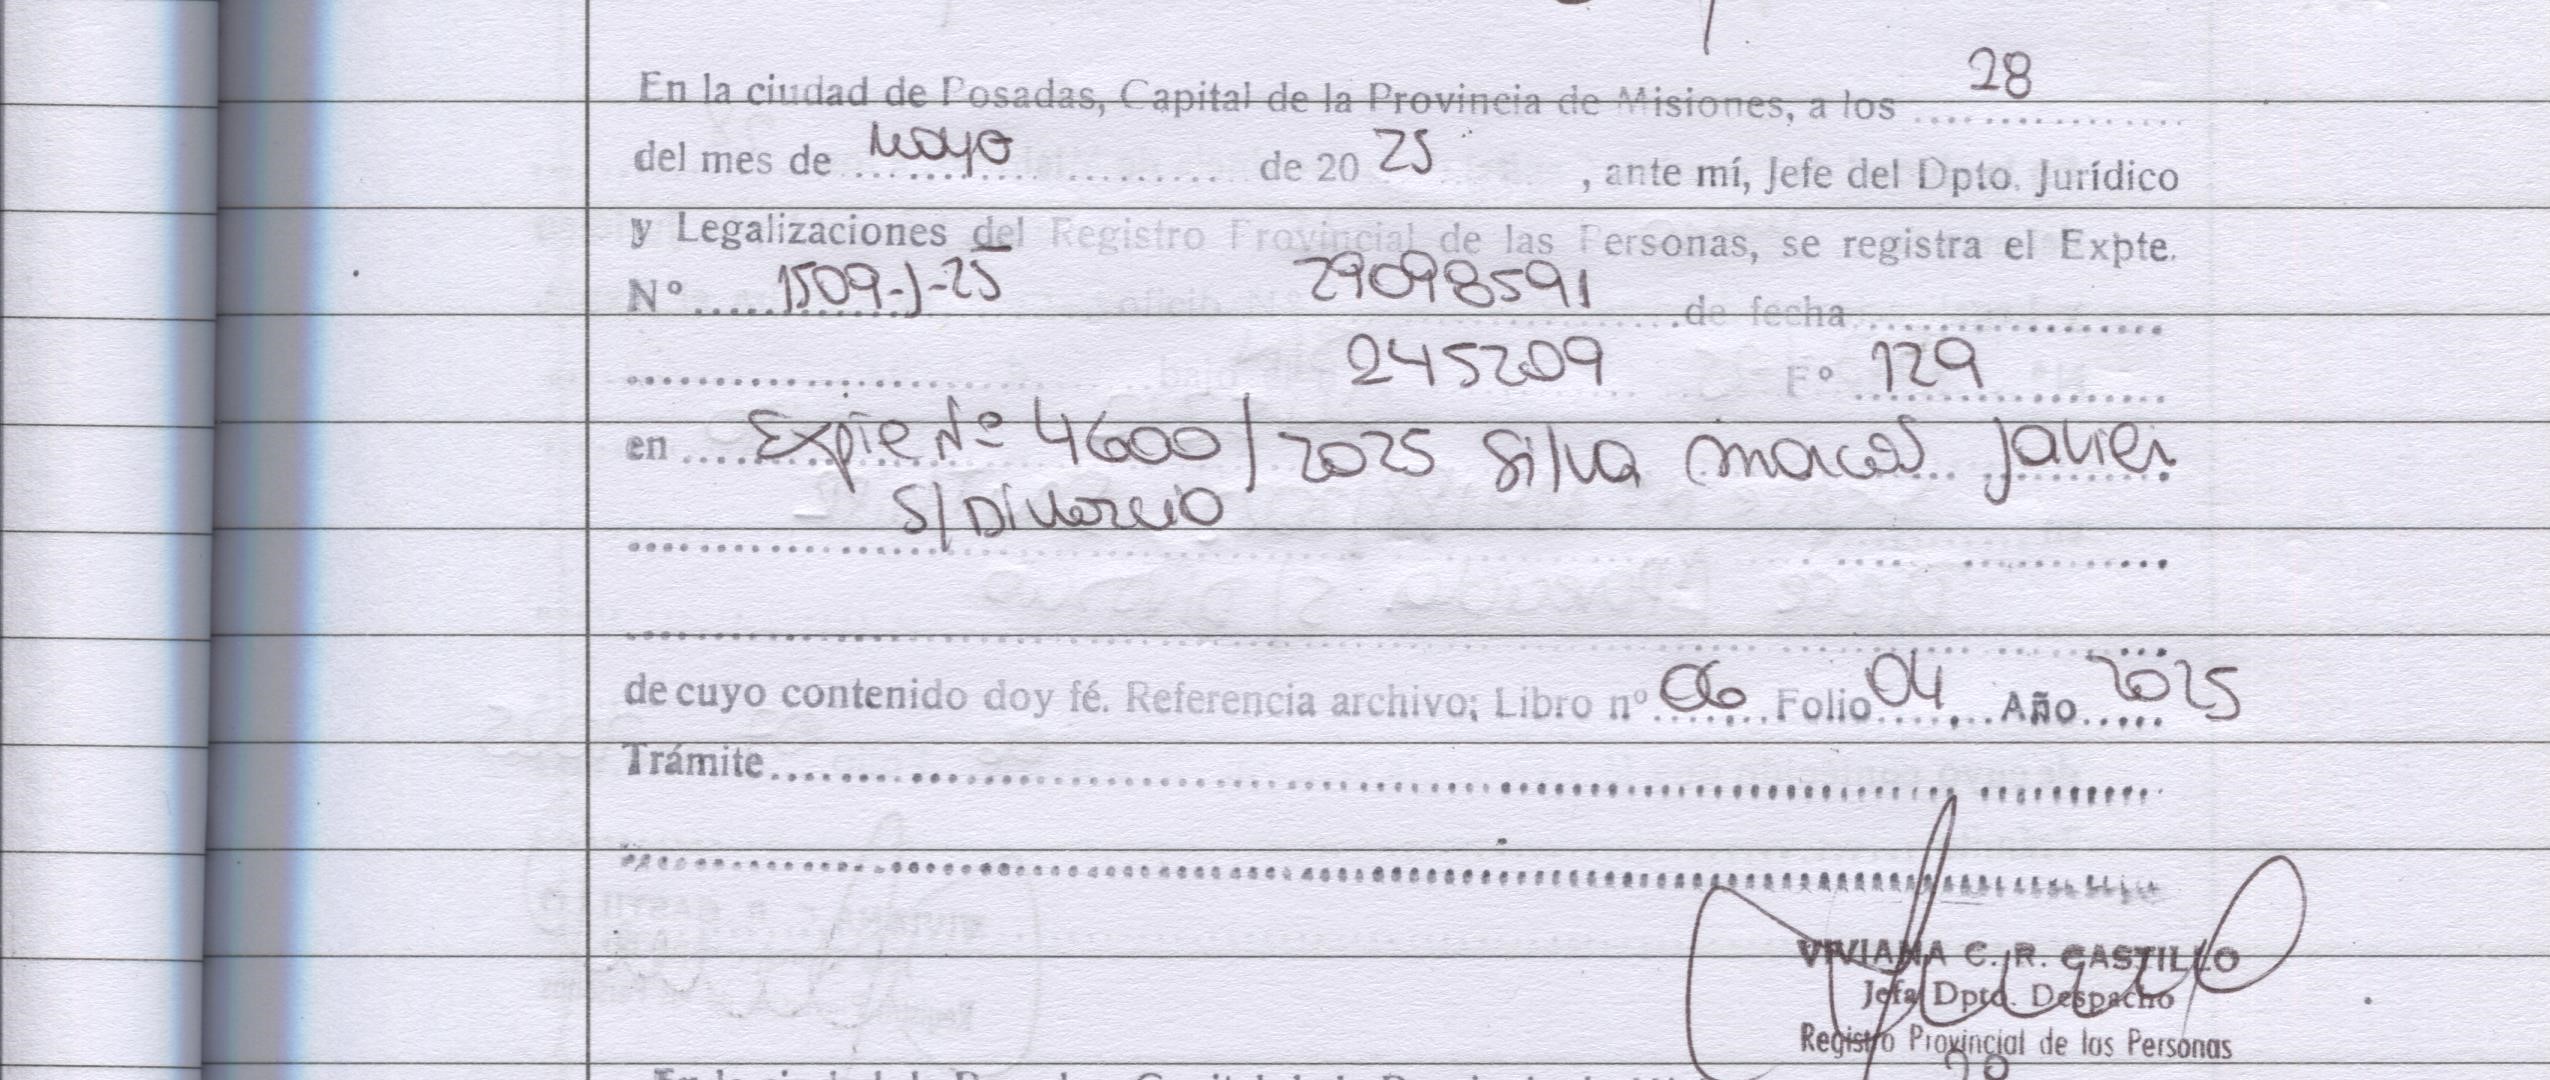 En la ciudad de Posadas, Capital de la Provincia de Misiones, a los 28
del mes de Mayo de 20 25, ante mí, Jefe del Dpto. Jurídico
y Legalizaciones del Registro Provincial de las Personas, se registra el Expte.
Nº 1509-J-25 29098591 de fecha
245209 Fº 129
en Expte Nº 4600/2025 Silva Marcos Javier
S/Divorcio
de cuyo contenido doy fé. Referencia archivo; Libro nº 06 Folio 04 Año 2025
Trámite
VIVIANA C. R. CASTILLO
Jefa Dpto. Despacho
Registro Provincial de las Personas